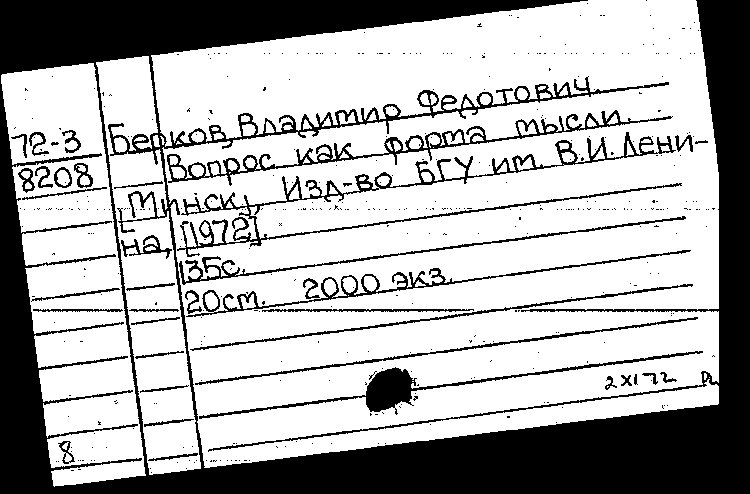 72-3
8208
Берков, Владимир Федотович.
Вопрос как форма мысли.
[Минск], Изд-во БГУ им. В.И. Лени-
на, [1972].
135с.
20см. 2000 экз.
2 XI 72
8